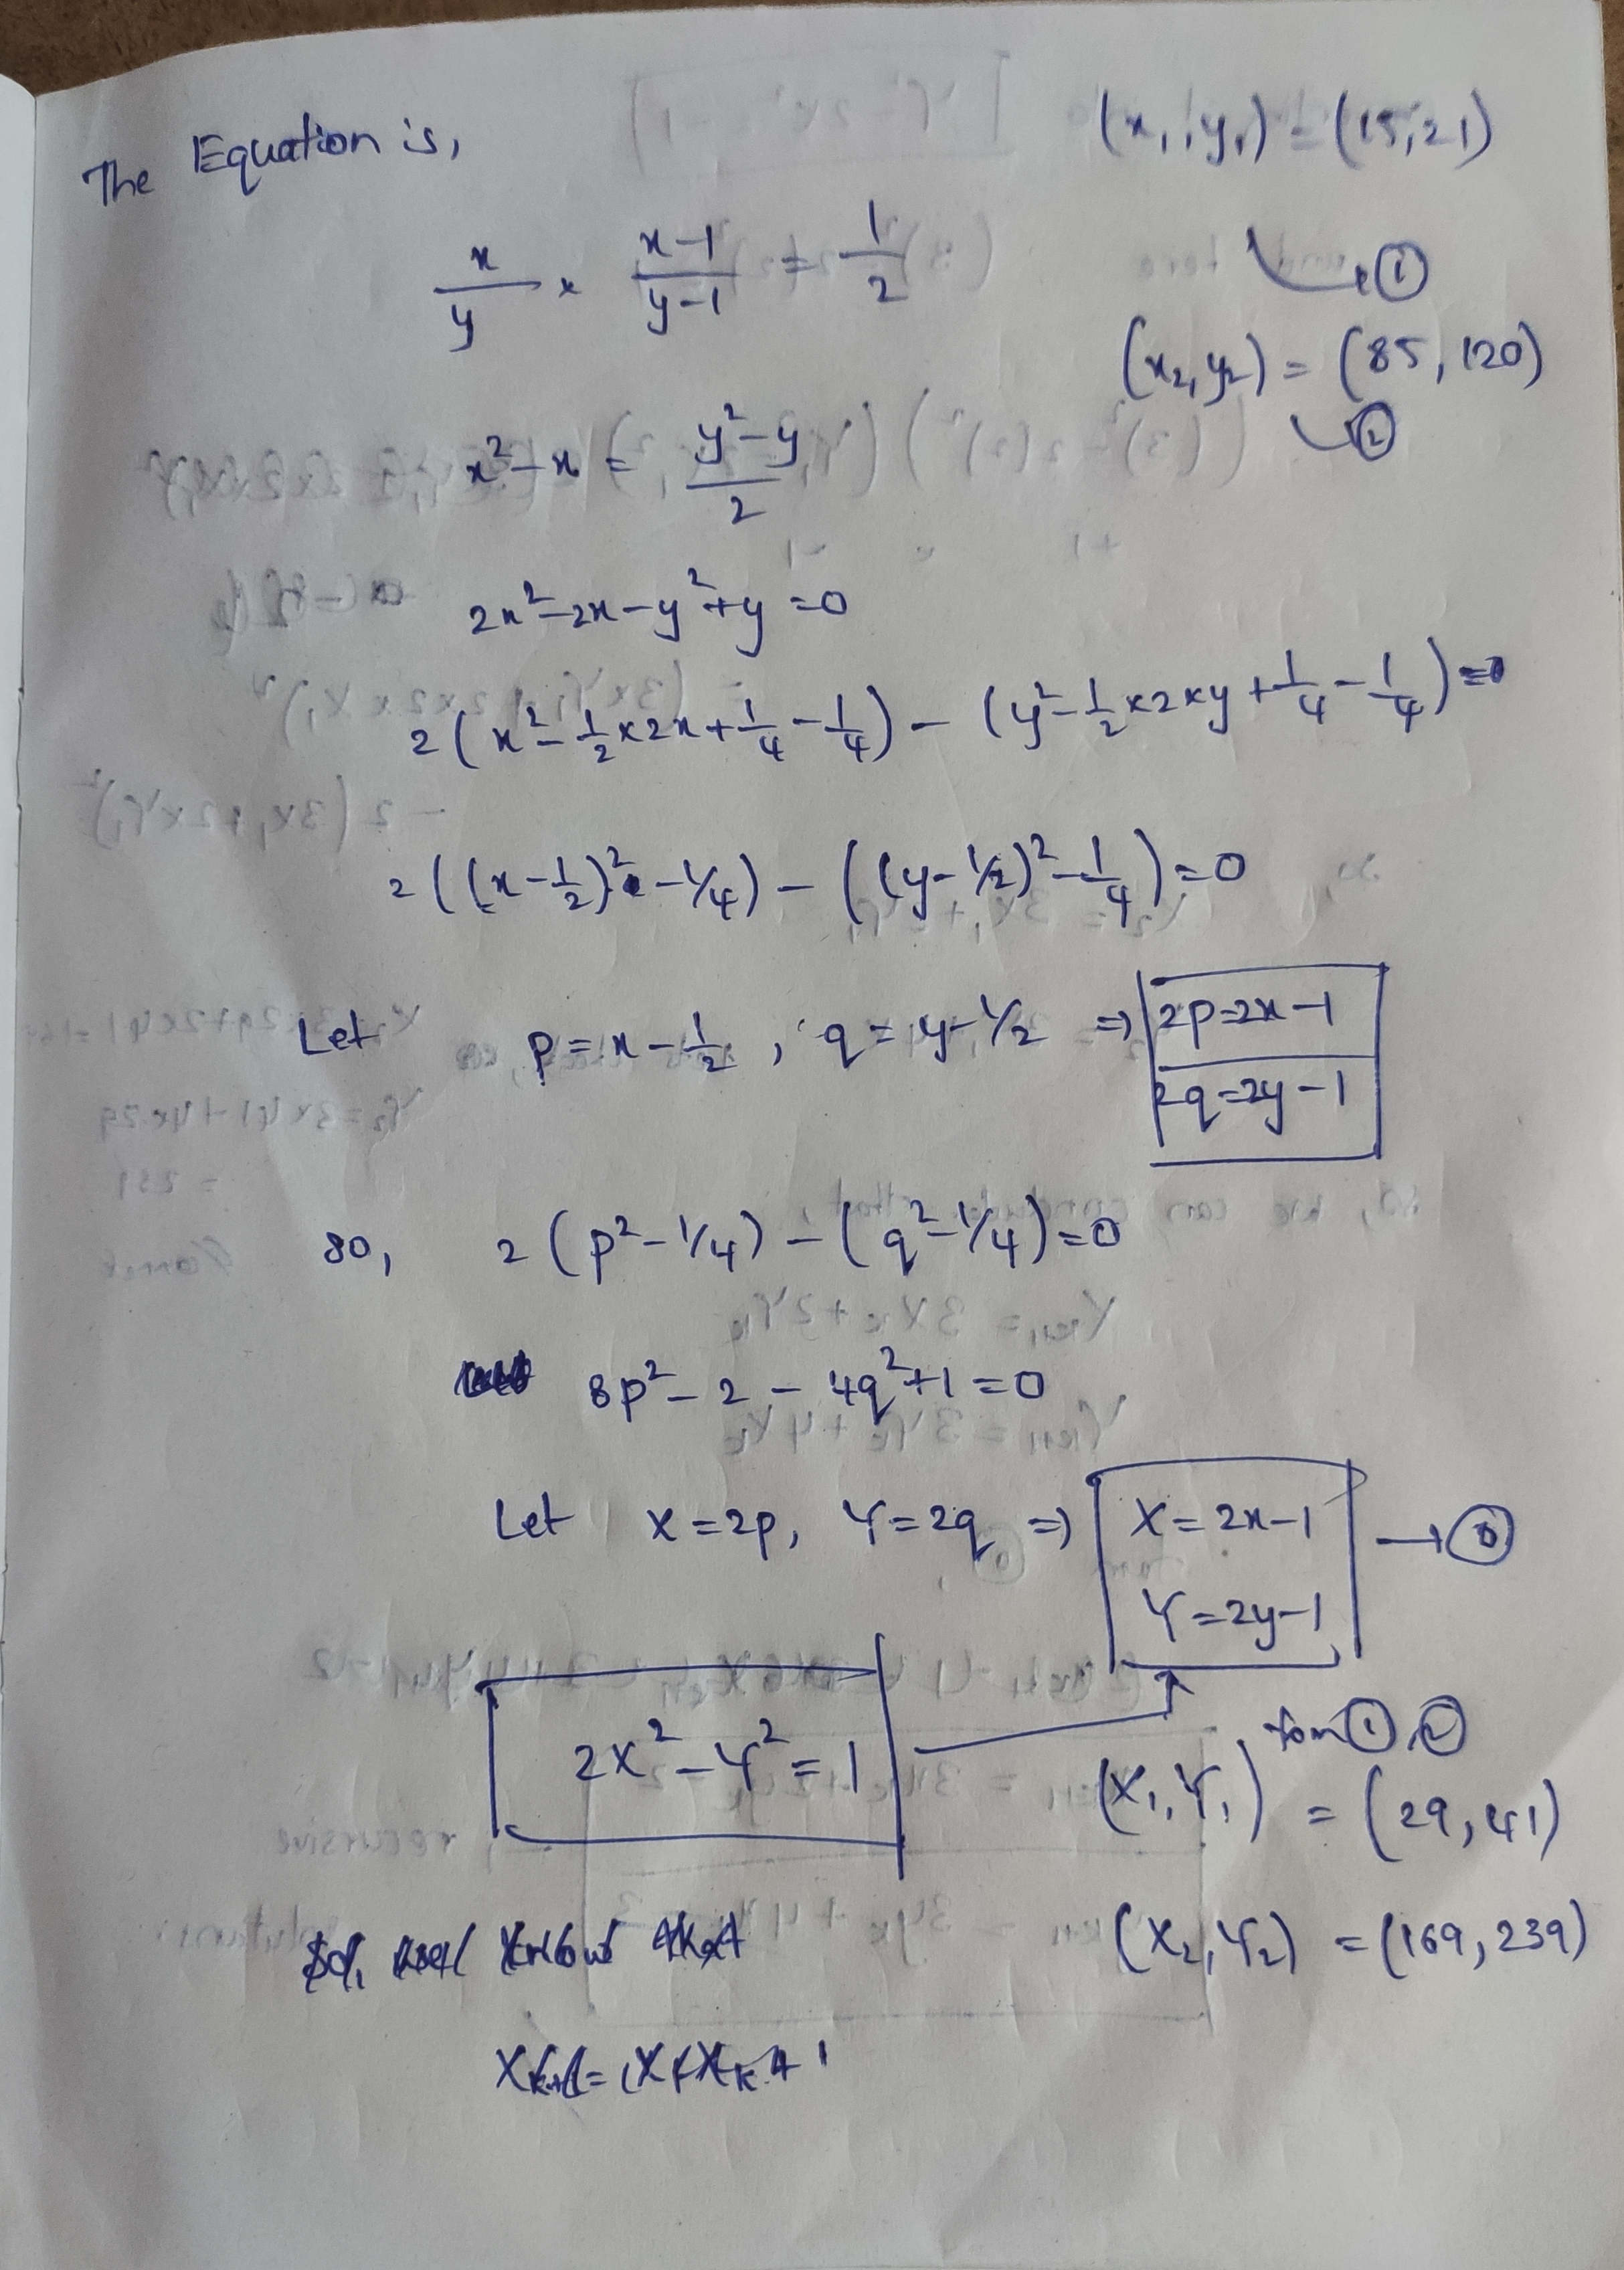 The Equation is,
(x₁, y₁) = (15, 21)
x/y × (x-1)/(y-1) = 1/2
→ ①
(x₂, y₂) = (85, 120)
→ ②
x² - x = (y² - y)/2
2x² - 2x - y² + y = 0
2(x² - 1/2 × 2x + 1/4 - 1/4) - (y² - 1/2 × 2 × y + 1/4 - 1/4) = 0
2((x - 1/2)² - 1/4) - ((y - 1/2)² - 1/4) = 0
Let p = x - 1/2, q = y - 1/2 ⇒ 2p = 2x - 1
2q = 2y - 1
So, 2(p² - 1/4) - (q² - 1/4) = 0
8p² - 2 - 4q² + 1 = 0
Let X = 2p, Y = 2q ⇒ X = 2x - 1
Y = 2y - 1
2X² - Y² = 1
from ①, ②
(X₁, Y₁) = (29, 41)
(X₂, Y₂) = (169, 239)